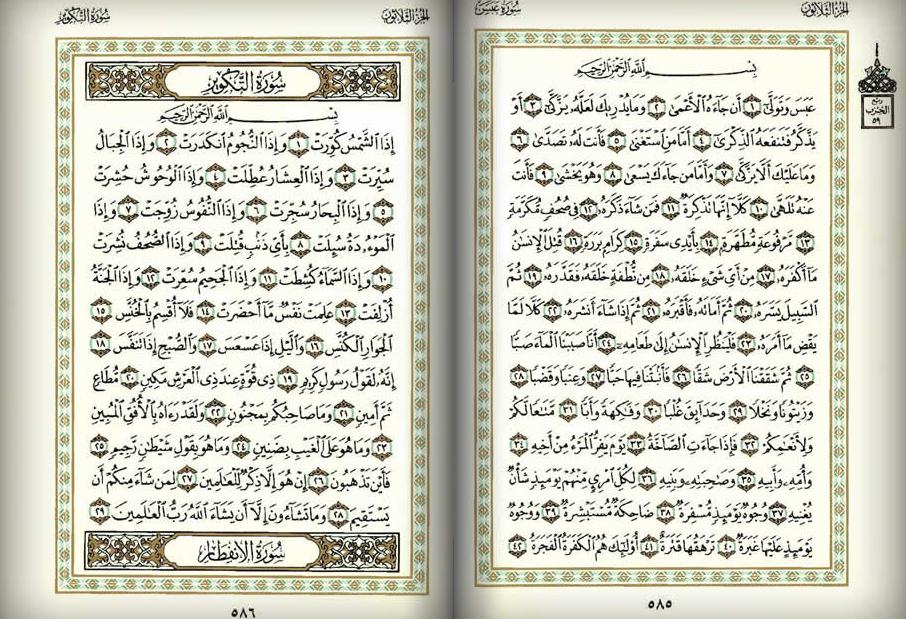 سُورَةُ عَبَسَ
الجُزْءُ الثَّلَاثُونَ
بِسْمِ اللَّهِ الرَّحْمَٰنِ الرَّحِيمِ
عَبَسَ وَتَوَلَّىٰٓ ١ أَن جَآءَهُ ٱلْأَعْمَىٰ ٢ وَمَا يُدْرِيكَ لَعَلَّهُۥ يَزَّكَّىٰٓ ٣ أَوْ
يَذَّكَّرُ فَتَنفَعَهُ ٱلذِّكْرَىٰٓ ٤ أَمَّا مَنِ ٱسْتَغْنَىٰ ٥ فَأَنتَ لَهُۥ تَصَدَّىٰ ٦
وَمَا عَلَيْكَ أَلَّا يَزَّكَّىٰ ٧ وَأَمَّا مَن جَآءَكَ يَسْعَىٰ ٨ وَهُوَ يَخْشَىٰ ٩ فَأَنتَ
عَنْهُ تَلَهَّىٰ ١٠ كَلَّآ إِنَّهَا تَذْكِرَةٌ ١١ فَمَن شَآءَ ذَكَرَهُۥ ١٢ فِى صُحُفٍ مُّكَرَّمَةٍ
١٣ مَّرْفُوعَةٍ مُّطَهَّرَةٍۭ ١٤ بِأَيْدِى سَفَرَةٍ ١٥ كِرَامٍۭ بَرَرَةٍ ١٦ قُتِلَ ٱلْإِنسَٰنُ
مَآ أَكْفَرَهُۥ ١٧ مِنْ أَىِّ شَىْءٍ خَلَقَهُۥ ١٨ مِن نُّطْفَةٍ خَلَقَهُۥ فَقَدَّرَهُۥ ١٩ ثُمَّ
ٱلسَّبِيلَ يَسَّرَهُۥ ٢٠ ثُمَّ أَمَاتَهُۥ فَأَقْبَرَهُۥ ٢١ ثُمَّ إِذَا شَآءَ أَنشَرَهُۥ ٢٢ كَلَّا لَمَّا
يَقْضِ مَآ أَمَرَهُۥ ٢٣ فَلْيَنظُرِ ٱلْإِنسَٰنُ إِلَىٰ طَعَامِهِۦٓ ٢٤ أَنَّا صَبَبْنَا ٱلْمَآءَ صَبًّا
٢٥ ثُمَّ شَقَقْنَا ٱلْأَرْضَ شَقًّا ٢٦ فَأَنۢبَتْنَا فِيهَا حَبًّا ٢٧ وَعِنَبًا وَقَضْبًا ٢٨
وَزَيْتُونًا وَنَخْلًا ٢٩ وَحَدَآئِقَ غُلْبًا ٣٠ وَفَٰكِهَةً وَأَبًّا ٣١ مَّتَٰعًا لَّكُمْ
وَلِأَنْعَٰمِكُمْ ٣٢ فَإِذَا جَآءَتِ ٱلصَّآخَّةُ ٣٣ يَوْمَ يَفِرُّ ٱلْمَرْءُ مِنْ أَخِيهِ ٣٤
وَأُمِّهِۦ وَأَبِيهِ ٣٥ وَصَٰحِبَتِهِۦ وَبَنِيهِ ٣٦ لِكُلِّ ٱمْرِئٍ مِّنْهُمْ يَوْمَئِذٍ شَأْنٌ
يُغْنِيهِ ٣٧ وُجُوهٌ يَوْمَئِذٍ مُّسْفِرَةٌ ٣٨ ضَاحِكَةٌ مُّسْتَبْشِرَةٌ ٣٩ وَوُجُوهٌ
يَوْمَئِذٍ عَلَيْهَا غَبَرَةٌ ٤٠ تَرْهَقُهَا قَتَرَةٌ ٤١ أُو۟لَٰٓئِكَ هُمُ ٱلْكَفَرَةُ ٱلْفَجَرَةُ ٤٢
ربع
الحزب
٥٩
٥٨٥
الجُزْءُ الثَّلَاثُونَ
سُورَةُ التَّكْوِيرِ
سُورَةُ التَّكْوِيرِ
بِسْمِ اللَّهِ الرَّحْمَٰنِ الرَّحِيمِ
إِذَا ٱلشَّمْسُ كُوِّرَتْ ١ وَإِذَا ٱلنُّجُومُ ٱنكَدَرَتْ ٢ وَإِذَا ٱلْجِبَالُ
سُيِّرَتْ ٣ وَإِذَا ٱلْعِشَارُ عُطِّلَتْ ٤ وَإِذَا ٱلْوُحُوشُ حُشِرَتْ
٥ وَإِذَا ٱلْبِحَارُ سُجِّرَتْ ٦ وَإِذَا ٱلنُّفُوسُ زُوِّجَتْ ٧ وَإِذَا
ٱلْمَوْءُۥدَةُ سُئِلَتْ ٨ بِأَىِّ ذَنۢبٍ قُتِلَتْ ٩ وَإِذَا ٱلصُّحُفُ نُشِرَتْ
١٠ وَإِذَا ٱلسَّمَآءُ كُشِطَتْ ١١ وَإِذَا ٱلْجَحِيمُ سُعِّرَتْ ١٢ وَإِذَا ٱلْجَنَّةُ
أُزْلِفَتْ ١٣ عَلِمَتْ نَفْسٌ مَّآ أَحْضَرَتْ ١٤ فَلَآ أُقْسِمُ بِٱلْخُنَّسِ ١٥
ٱلْجَوَارِ ٱلْكُنَّسِ ١٦ وَٱلَّيْلِ إِذَا عَسْعَسَ ١٧ وَٱلصُّبْحِ إِذَا تَنَفَّسَ ١٨
إِنَّهُۥ لَقَوْلُ رَسُولٍ كَرِيمٍ ١٩ ذِى قُوَّةٍ عِندَ ذِى ٱلْعَرْشِ مَكِينٍ ٢٠ مُّطَاعٍ
ثَمَّ أَمِينٍ ٢١ وَمَا صَاحِبُكُم بِمَجْنُونٍ ٢٢ وَلَقَدْ رَءَاهُ بِٱلْأُفُقِ ٱلْمُبِينِ
٢٣ وَمَا هُوَ عَلَى ٱلْغَيْبِ بِضَنِينٍ ٢٤ وَمَا هُوَ بِقَوْلِ شَيْطَٰنٍ رَّجِيمٍ ٢٥
فَأَيْنَ تَذْهَبُونَ ٢٦ إِنْ هُوَ إِلَّا ذِكْرٌ لِّلْعَٰلَمِينَ ٢٧ لِمَن شَآءَ مِنكُمْ أَن
يَسْتَقِيمَ ٢٨ وَمَا تَشَآءُونَ إِلَّآ أَن يَشَآءَ ٱللَّهُ رَبُّ ٱلْعَٰلَمِينَ ٢٩
سُورَةُ الانفِطَارِ
٥٨٦